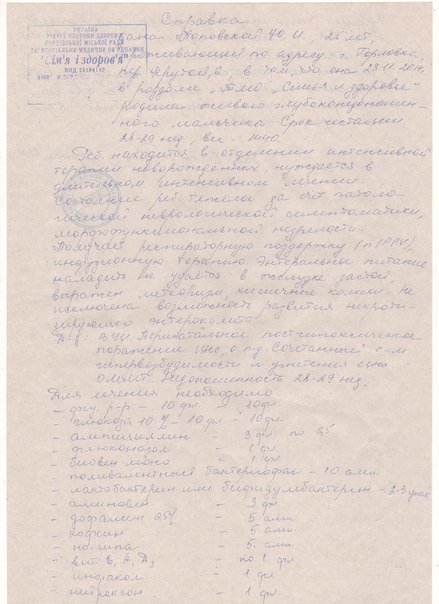 Справка
УКРАЇНА
ГОРЛІВСЬКОЇ МІСЬКОЇ РАДИ
"Сім'я і здоров'я"
Дана Поповской Ю.И., 25 лет,
проживающей по адресу г. Горловка
в том, что она 23.11.2014
в роддоме "Семья и здоровье"
родила живого глубоконедоношен-
ного мальчика. Срок гестации
28-29 нед, вес - 1440.
Реб. находится в отделении интенсивной
терапии новорожденных, нуждается в
длительном интенсивном лечении.
Состояние реб. тяжелое за счет патоло-
гической неврологической симптоматики,
морфофункциональной незрелости.
Получает респираторную поддержку (NIPPV)
инфузионную терапию. Энтеральное питание
наладить не удается в желудке застой
выражен метеоризм, кишечные колики. Не
исключена возможность развития некроти-
зирующего энтероколита.
D-з: ВУИ. Перинатальное постгипоксическое
поражение ЦНС, о.пд. Сочетанный с-м
гипервозбудимости и угнетения
Недоношенность 28-29 нед.
Для лечения необходимо
- физ р-р - 10 фл
- глюкоза 10% - 10 фл
- ампициллин - 3 фл по 0,5
- флюконазол - 1 фл
- биовен моно - 1 фл
поливалентный бактериофаг - 10 амп
- лактобактерин или бифидумбактерин - 2-3 упак
- аминовен - 3 фл
- дофамин - 5 амп
- кофеин - 5 амп
- но-шпа - 5 амп
- вит Е, А, Д3 - по 1 фл
- инфакол - 1 фл
- нейроксон - 1 фл